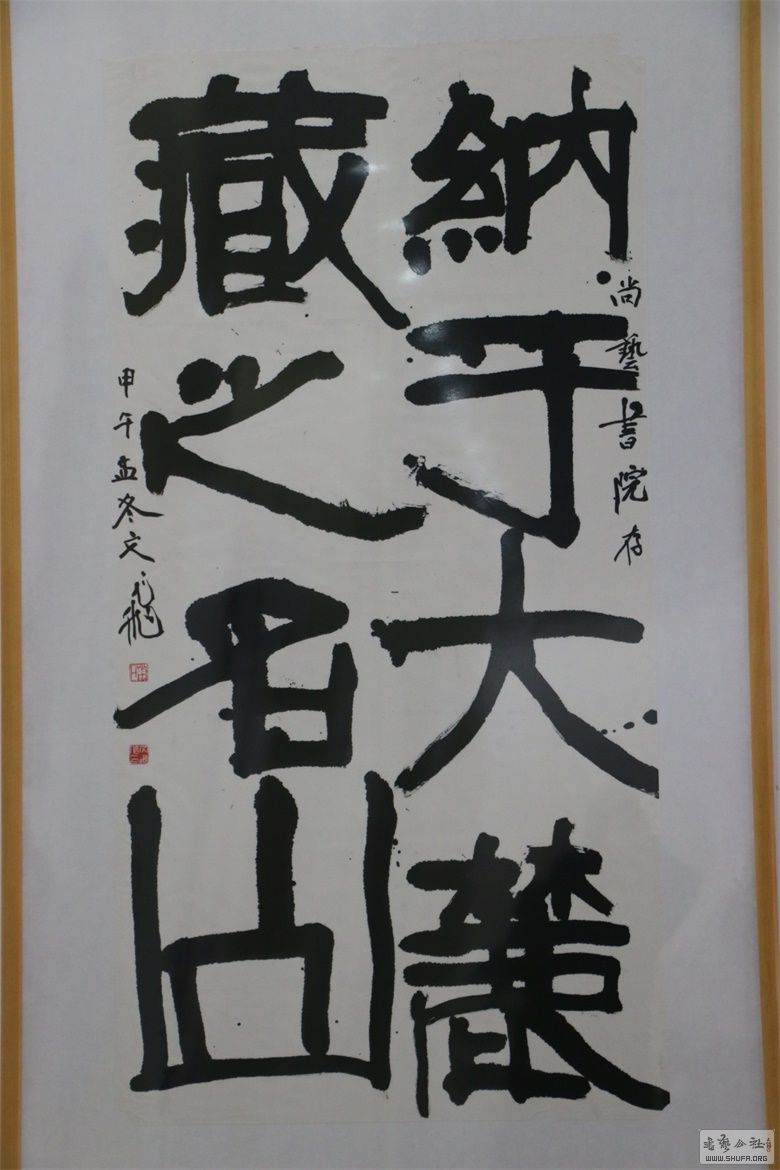 納于大麓
藏之名山
尚藝書院存
甲午孟冬文飛
書藝公社
WWW.SHUFA.ORG